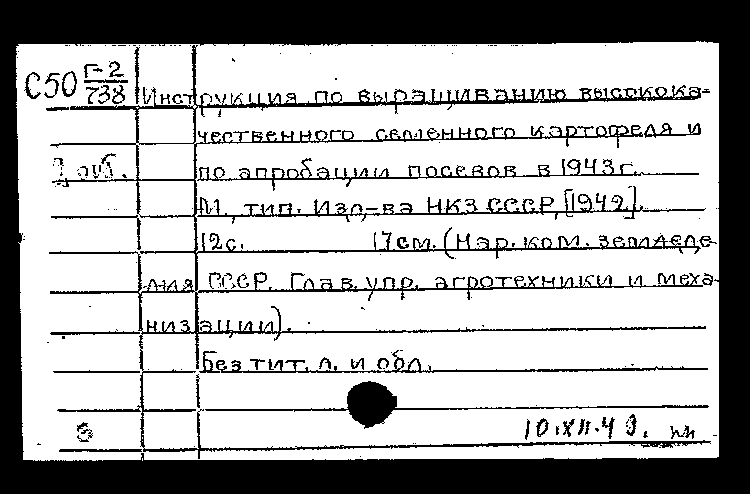 С50 Г-2
738 Инструкция по выращиванию высокока-
чественного семенного картофеля и
по апробации посевов в 1943 г.
М., тип. Изд-ва НКЗ СССР, [1942].
12 с. 17 см. (Нар. ком. земледе-
лия СССР. Глав. упр. агротехники и меха-
низации).
Без тит. л. и обл.
10.XII.49.